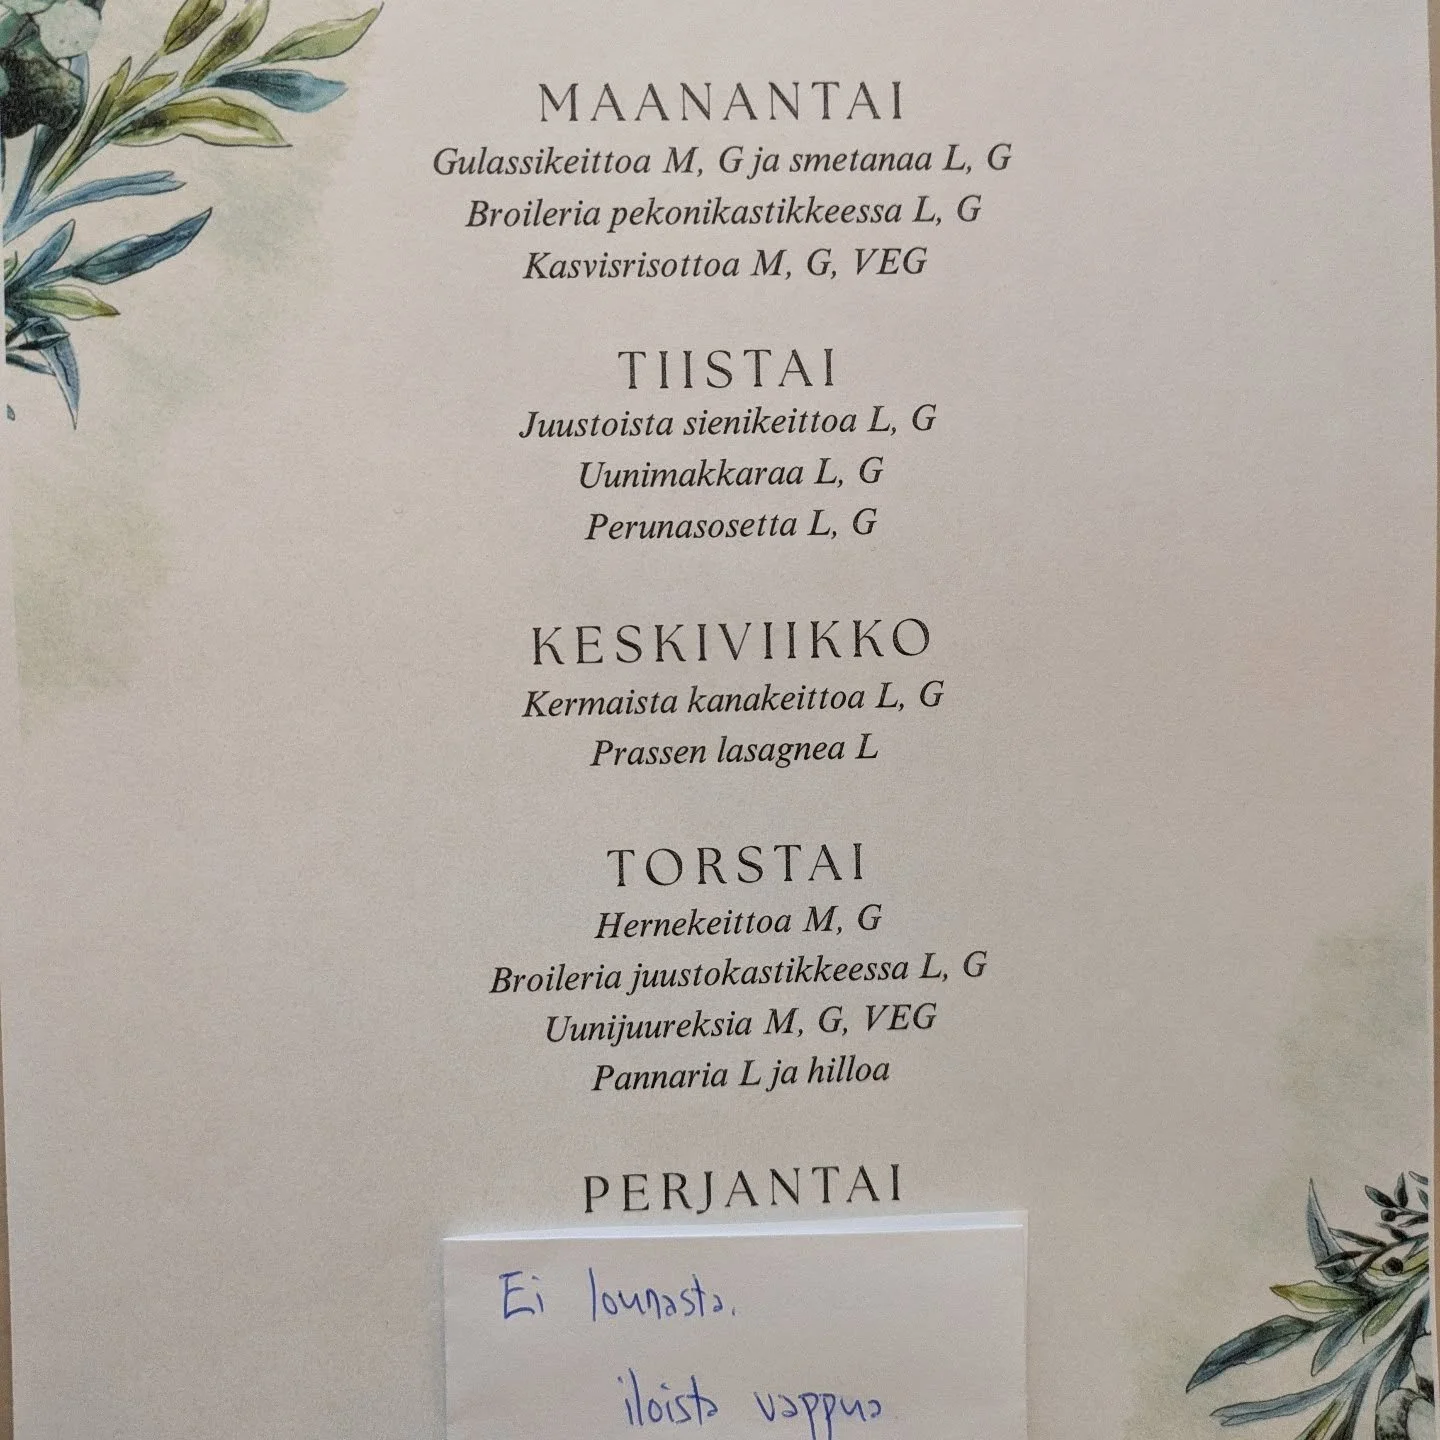 MAANANTAI
Gulassikeittoa M, G ja smetanaa L, G
Broileria pekonikastikkeessa L, G
Kasvisrisottoa M, G, VEG
TIISTAI
Juustoista sienikeittoa L, G
Uunimakkaraa L, G
Perunasosetta L, G
KESKIVIIKKO
Kermaista kanakeittoa L, G
Prassen lasagnea L
TORSTAI
Hernekeittoa M, G
Broileria juustokastikkeessa L, G
Uunijuureksia M, G, VEG
Pannaria L ja hilloa
PERJANTAI
Ei lounasta.
iloista vappua